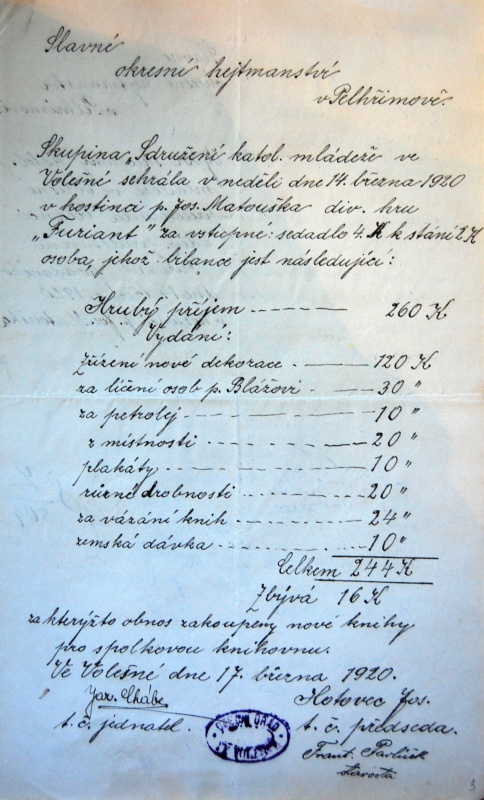 Slavné
okresní hejtmanství
v Pelhřimově.
Skupina „Sdružení katol. mládeže ve
Volešné sehrála v neděli dne 14. března 1920
v hostinci p. Jos. Matouška div. hru
„Furiant" za vstupné: sedadlo 4 K k stání 2 K
osoba, jehož bilance jest následující:
Hrubý příjem 260 K
Vydání:
Zřízení nové dekorace 120 K
za líčení osob p. Blážovi 30 "
za petrolej 10 "
z místnosti 20 "
plakáty 10 "
různé drobnosti 20 "
za vázání knih 24 "
zemská dávka 10 "
Celkem 244 K
Zbývá 16 K
za kterýžto obnos zakoupeny nové knihy
pro spolkovou knihovnu.
Ve Volešné dne 17. března 1920.
Jar. Chábe Hotovec Jos.
t. č. jednatel. t. č. předseda.
OBECNÍ ÚŘAD
Frant. Pavlíček
starosta